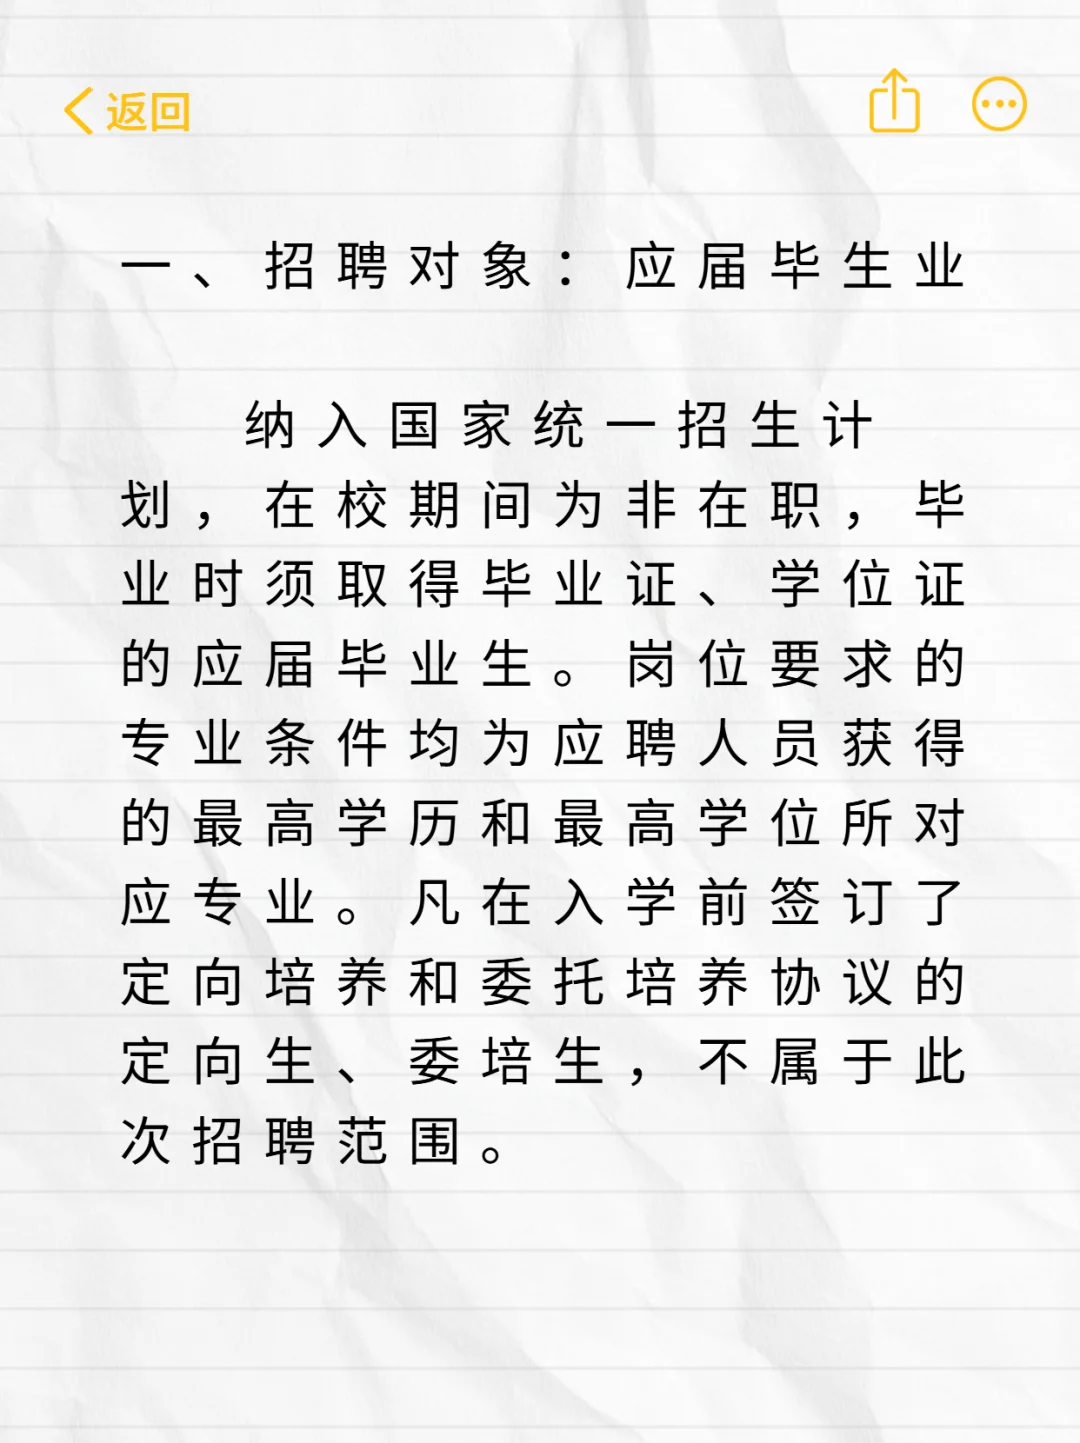 返回
一、招聘对象：应届毕生业
纳入国家统一招生计
划，在校期间为非在职，毕
业时须取得毕业证、学位证
的应届毕业生。岗位要求的
专业条件均为应聘人员获得
的最高学历和最高学位所对
应专业。凡在入学前签订了
定向培养和委托培养协议的
定向生、委培生，不属于此
次招聘范围。